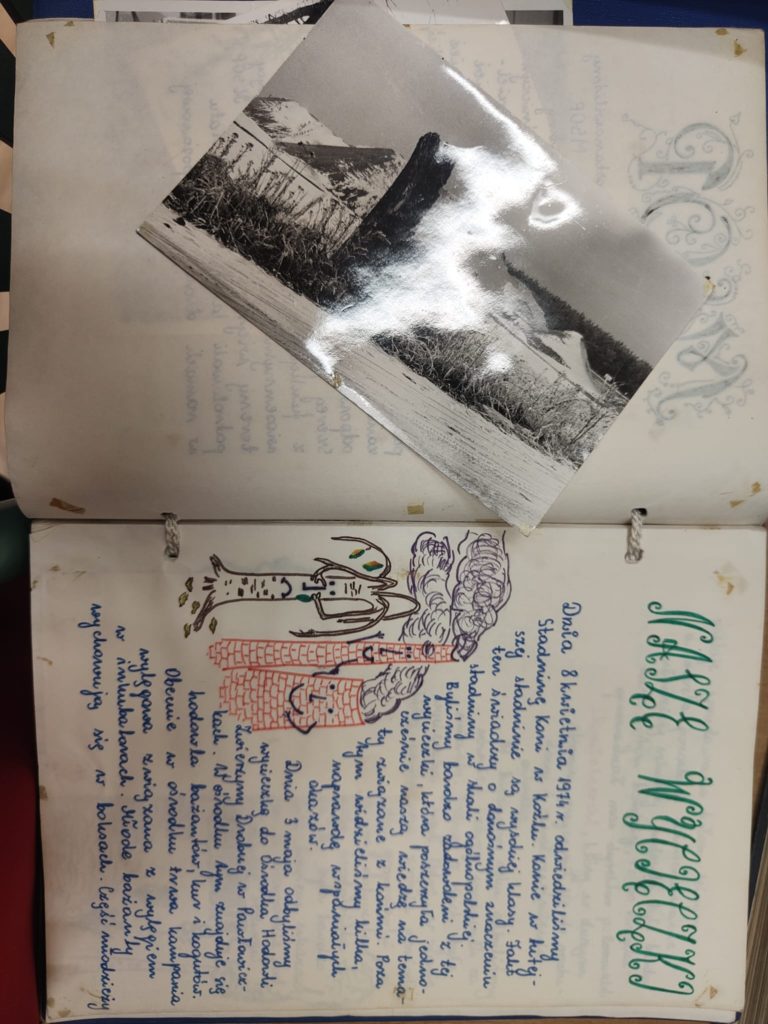 NASZE WYCIECZKI
Dnia 8 kwietnia 1974 r. odwiedziliśmy
Stadninę Koni w Koźlu. Konie w tutej-
szej stadninie są wysokiej klasy. Fakt
ten świadczy o doniosłym znaczeniu
stadniny w skali ogólnopolskiej.
Byliśmy bardzo zadowoleni z tej
wycieczki, która poszerzyła jedno-
cześnie naszą wiedzę na tema-
ty związane z końmi. Poza
tym widzieliśmy kilka,
naprawdę wspaniałych
okazów.
Dnia 3 maja odbyliśmy
wycieczkę do Ośrodka Hodowli
Zwierzyny Drobnej w Pawłowicz-
kach. W ośrodku tym znajduje się
hodowla bażantów, kur i kogutów.
Obecnie w ośrodku trwa kampania
wylęgowa związana z wylęgiem
w inkubatorach. Młode bażanty
wychowują się w boksach. Część młodzieży